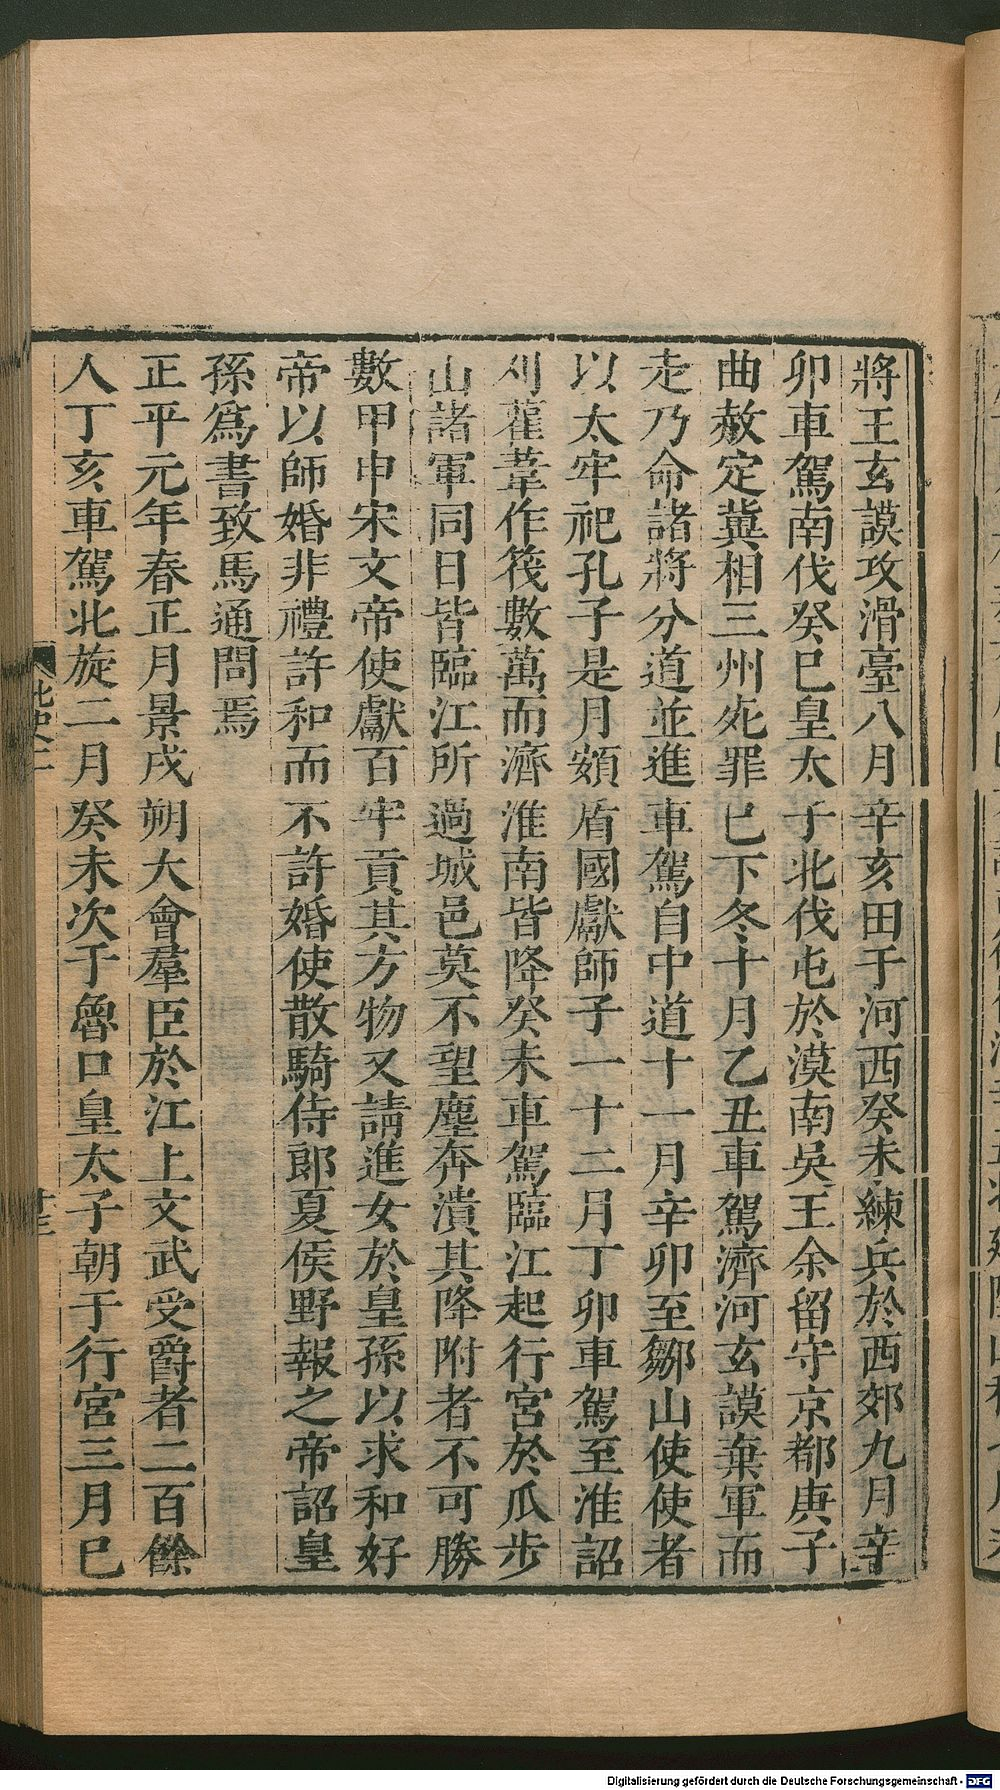 將王玄謨攻滑臺八月辛亥田于河西癸未練兵於西郊九月辛
卯車駕南伐癸巳皇太子北伐屯於漠南吳王余留守京都庚子
曲赦定冀相三州死罪已下冬十月乙丑車駕濟河玄謨棄軍而
走乃命諸將分道並進車駕自中道十一月辛卯至鄒山使使者
以太牢祀孔子是月頞盾國獻師子一十二月丁卯車駕至淮詔
刈雚葦作筏數萬而濟淮南皆降癸未車駕臨江起行宮於瓜步
山諸軍同日皆臨江所過城邑莫不望塵奔潰其降附者不可勝
數甲申宋文帝使獻百牢貢其方物又請進女於皇孫以求和好
帝以師婚非禮許和而不許婚使散騎侍郎夏侯野報之帝詔皇
孫爲書致馬通問焉
正平元年春正月景戌朔大會羣臣於江上文武受爵者二百餘
人丁亥車駕北旋二月癸未次于魯口皇太子朝于行宮三月巳
北史二
廿三
Digitalisierung gefördert durch die Deutsche Forschungsgemeinschaft - DFG